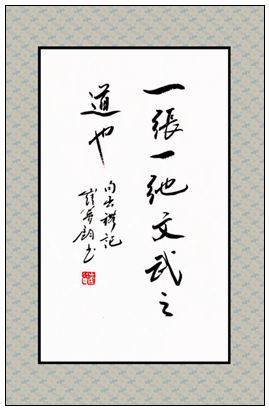 一張一弛文武之
道也
句出禮記